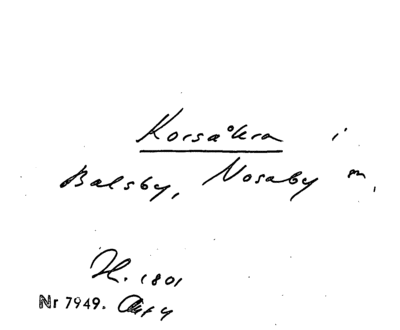 Korsåkra i
Balsby, Nosaby sn,
H. 1801
Nr 7949.